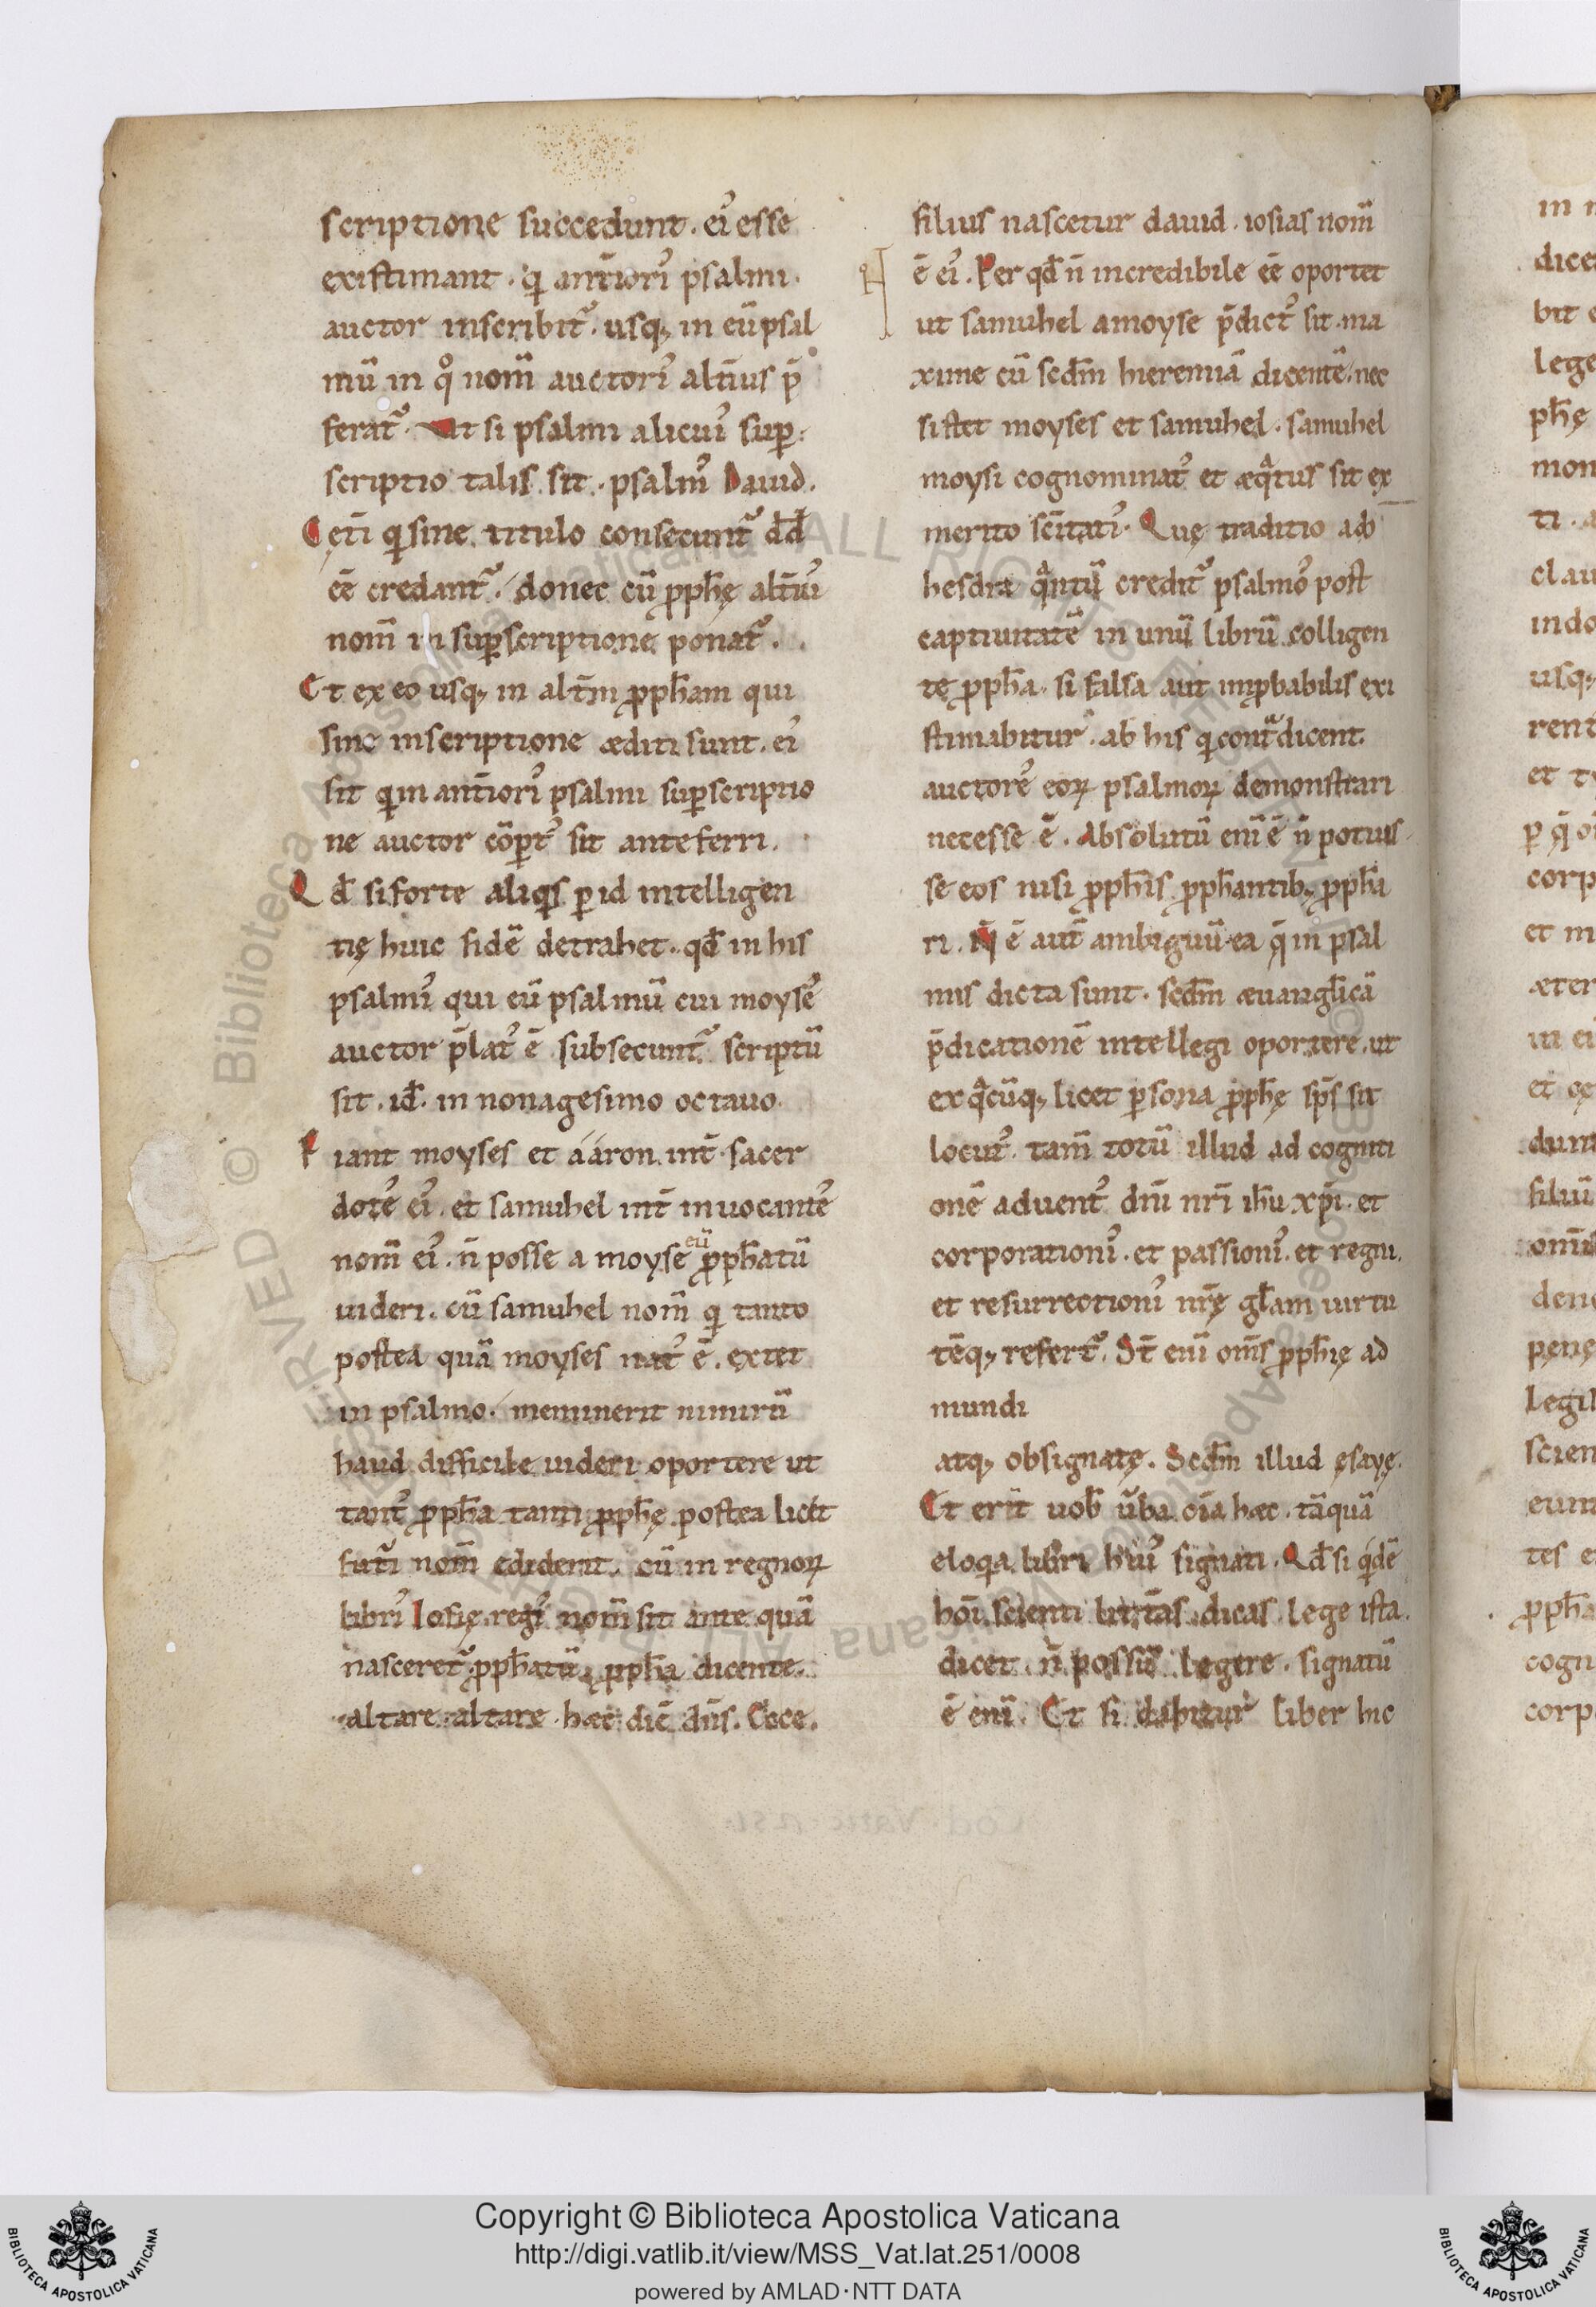 scriptione succedunt . ei᾽ esse
existimant . q̇ ant̄iori᾽ psalmi .
auctor inscribit᷑ . usq; in eū psal
mū in q̊ nom̄ auctori᾽ alt̄ius p̄
ferat᷑ . Vt si psalmi alicui᾽ suꝑ
scriptio talis sit . psalm᾽ Dauid .
Cęt̄i q̇ sine titulo consecunt᷑ dd̄
eē credant᷑ . donec cū ꝓph̄ę alt̄iu᾽
nom̄ in suꝑscriptione ponat᷑ .
Et ex eo usq; in alt̄m ꝓph̄am qui
sine inscriptione æditi sunt . ei᾽
sit q̇ in ant̄iori᾽ psalmi suꝑscriptio
ne auctor cōꝑt᾽ sit anteferri .
Qd̄ si forte aliq̇s ꝑ id intelligen
tię huic fidē detrahet . qd̄ in his
psalmi᾽ qui eū psalmū cui moyse᾽
auctor p̄lat᾽ ē subsecunt᷑ scriptū
sit . id̄ . in nonagesimo octauo .
Fiant moyses et ááron . int̄ sacer
dote᾽ ei᾽ . et samuhel int̄ inuocante᾽
nom̄ ei᾽ . n̄ posse a moyse eū ꝓph̄atū
uideri . cū samuhel nom̄ q̇ tanto
postea quā moyses nat᾽ ē . extet
in psalmo . meminerit nimirū
haud difficile uideri oportere ut
tant᾽ ꝓph̄a tanti ꝓph̄ę postea licet
futi᷑ nom̄ ediderit . cū in regnoꝝ
libri᾽ Iosię regi᾽ nom̄ sit ante quā
nasceret᷑ ꝓph̄atū ꝓph̄a dicente .
altare altare hæc dic̄ dn̄s . Ecce .
filius nascetur dauid . iosias nom̄
ē ei᾽ . Per qd̄ n̄ incredibile eē oportet
ut samuhel amoyse p̄dict᾽ sit . ma
xime cū scd̄m hieremiā dicentē . nec
sistet moyses et samuhel . samuhel
moysi cognominat᾽ et æqͣtus sit ex
merito sc̄itati᾽ . Quę traditio ab
hesdra qͣntū credit᷑ psalmo᾽ post
captiuitatē in unū librū colligen
te ꝓph̄a . si falsa aut inp̱babilis exi
stimabitur . ab his q̇ contͣdicent
auctore᾽ eoꝝ psalmoꝝ demonstrari
necesse ē . Absolutū eni᷑ ē n̄ potuis
se eos nisi ꝓph̄is ꝓph̄antib; ꝓph̄a
ri . N̄ ē aut̄ ambiguū ea q̄ in psal
mis dicta sunt . scd̄m æuangl̄icā
p̄dicationē intellegi oportere . ut
ex qͣcūq; licet ꝑsona ꝓph̄ę sp̄s sit
locut᾽ . tam̄ totū illud ad cogniti
onē aduent᾽ dn̄i nr̄i ih̄u xp̄i . et
corporationi᾽ . et passioni᾽ . et regni .
et resurrectioni᾽ nr̄ę gl̄am uirtu
tēq; refert᷑ . St̄ eni᷑ om̄s ꝓph̄ię ad
mundi
atq; obsignatę . Scd̄m illud esaye .
Et erit uob̄ ūba oīa hæc . tāquā
eloq̇a libri hui᾽ signati . Qd̄ si q̇dē
hoī scienti litt̄as . dicas . lege ista .
dicet . n̄ possū legere . signatū
ē eni᷑ . Et si dabitur liber hic
Copyright © Biblioteca Apostolica Vaticana
http://digi.vatlib.it/view/MSS_Vat.lat.251/0008
powered by AMLAD·NTT DATA